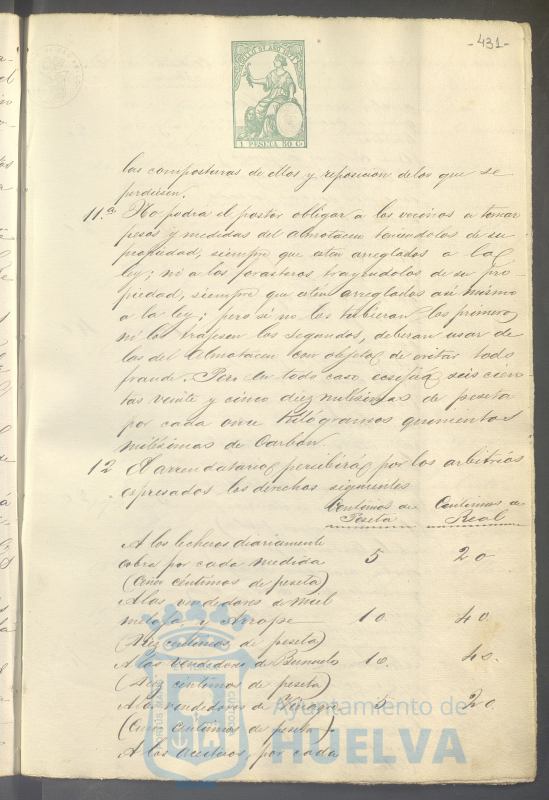 -431-
1 PESETA 50 C.
las composturas de ellos y reposicion de los que se
perdiesen.
11.ª No podra el postor obligar a los vecinos a tomar
pesos y medidas del Almotacen teniendolos de su
propiedad, siempre que esten arreglados a la
ley; ni a los forasteros trayendolos de su pro-
piedad, siempre que estén arreglados asi mismo
a la ley; pero si no los tubieran los primeros
ni los trajesen los segundos, deberan usar de
las del Almotacen con objeto de evitar todo
fraude. Pero en todo caso seis cien-
tas veinte y cinco diez milésimas de peseta
por cada once Kilógramos quinientos
milésimas de Carbon.
12 El arrendatario percibirá por los arbitrios
expresados los derechos siguientes
Centimos de Centimos de
Peseta Real
A los lecheros diariamente
cobra por cada medida 5 20
(Cinco céntimos de peseta)
A los vendedores de miel
melaza, y Arrope 10. 40.
(Diez centimos de peseta)
A los vendedores de Buñuelos 10. 40.
(Diez centimos de peseta)
A los vendedores de 5 20.
(Cinco centimos de peseta)
A los aceiteros, por cada
Ayuntamiento de
HUELVA